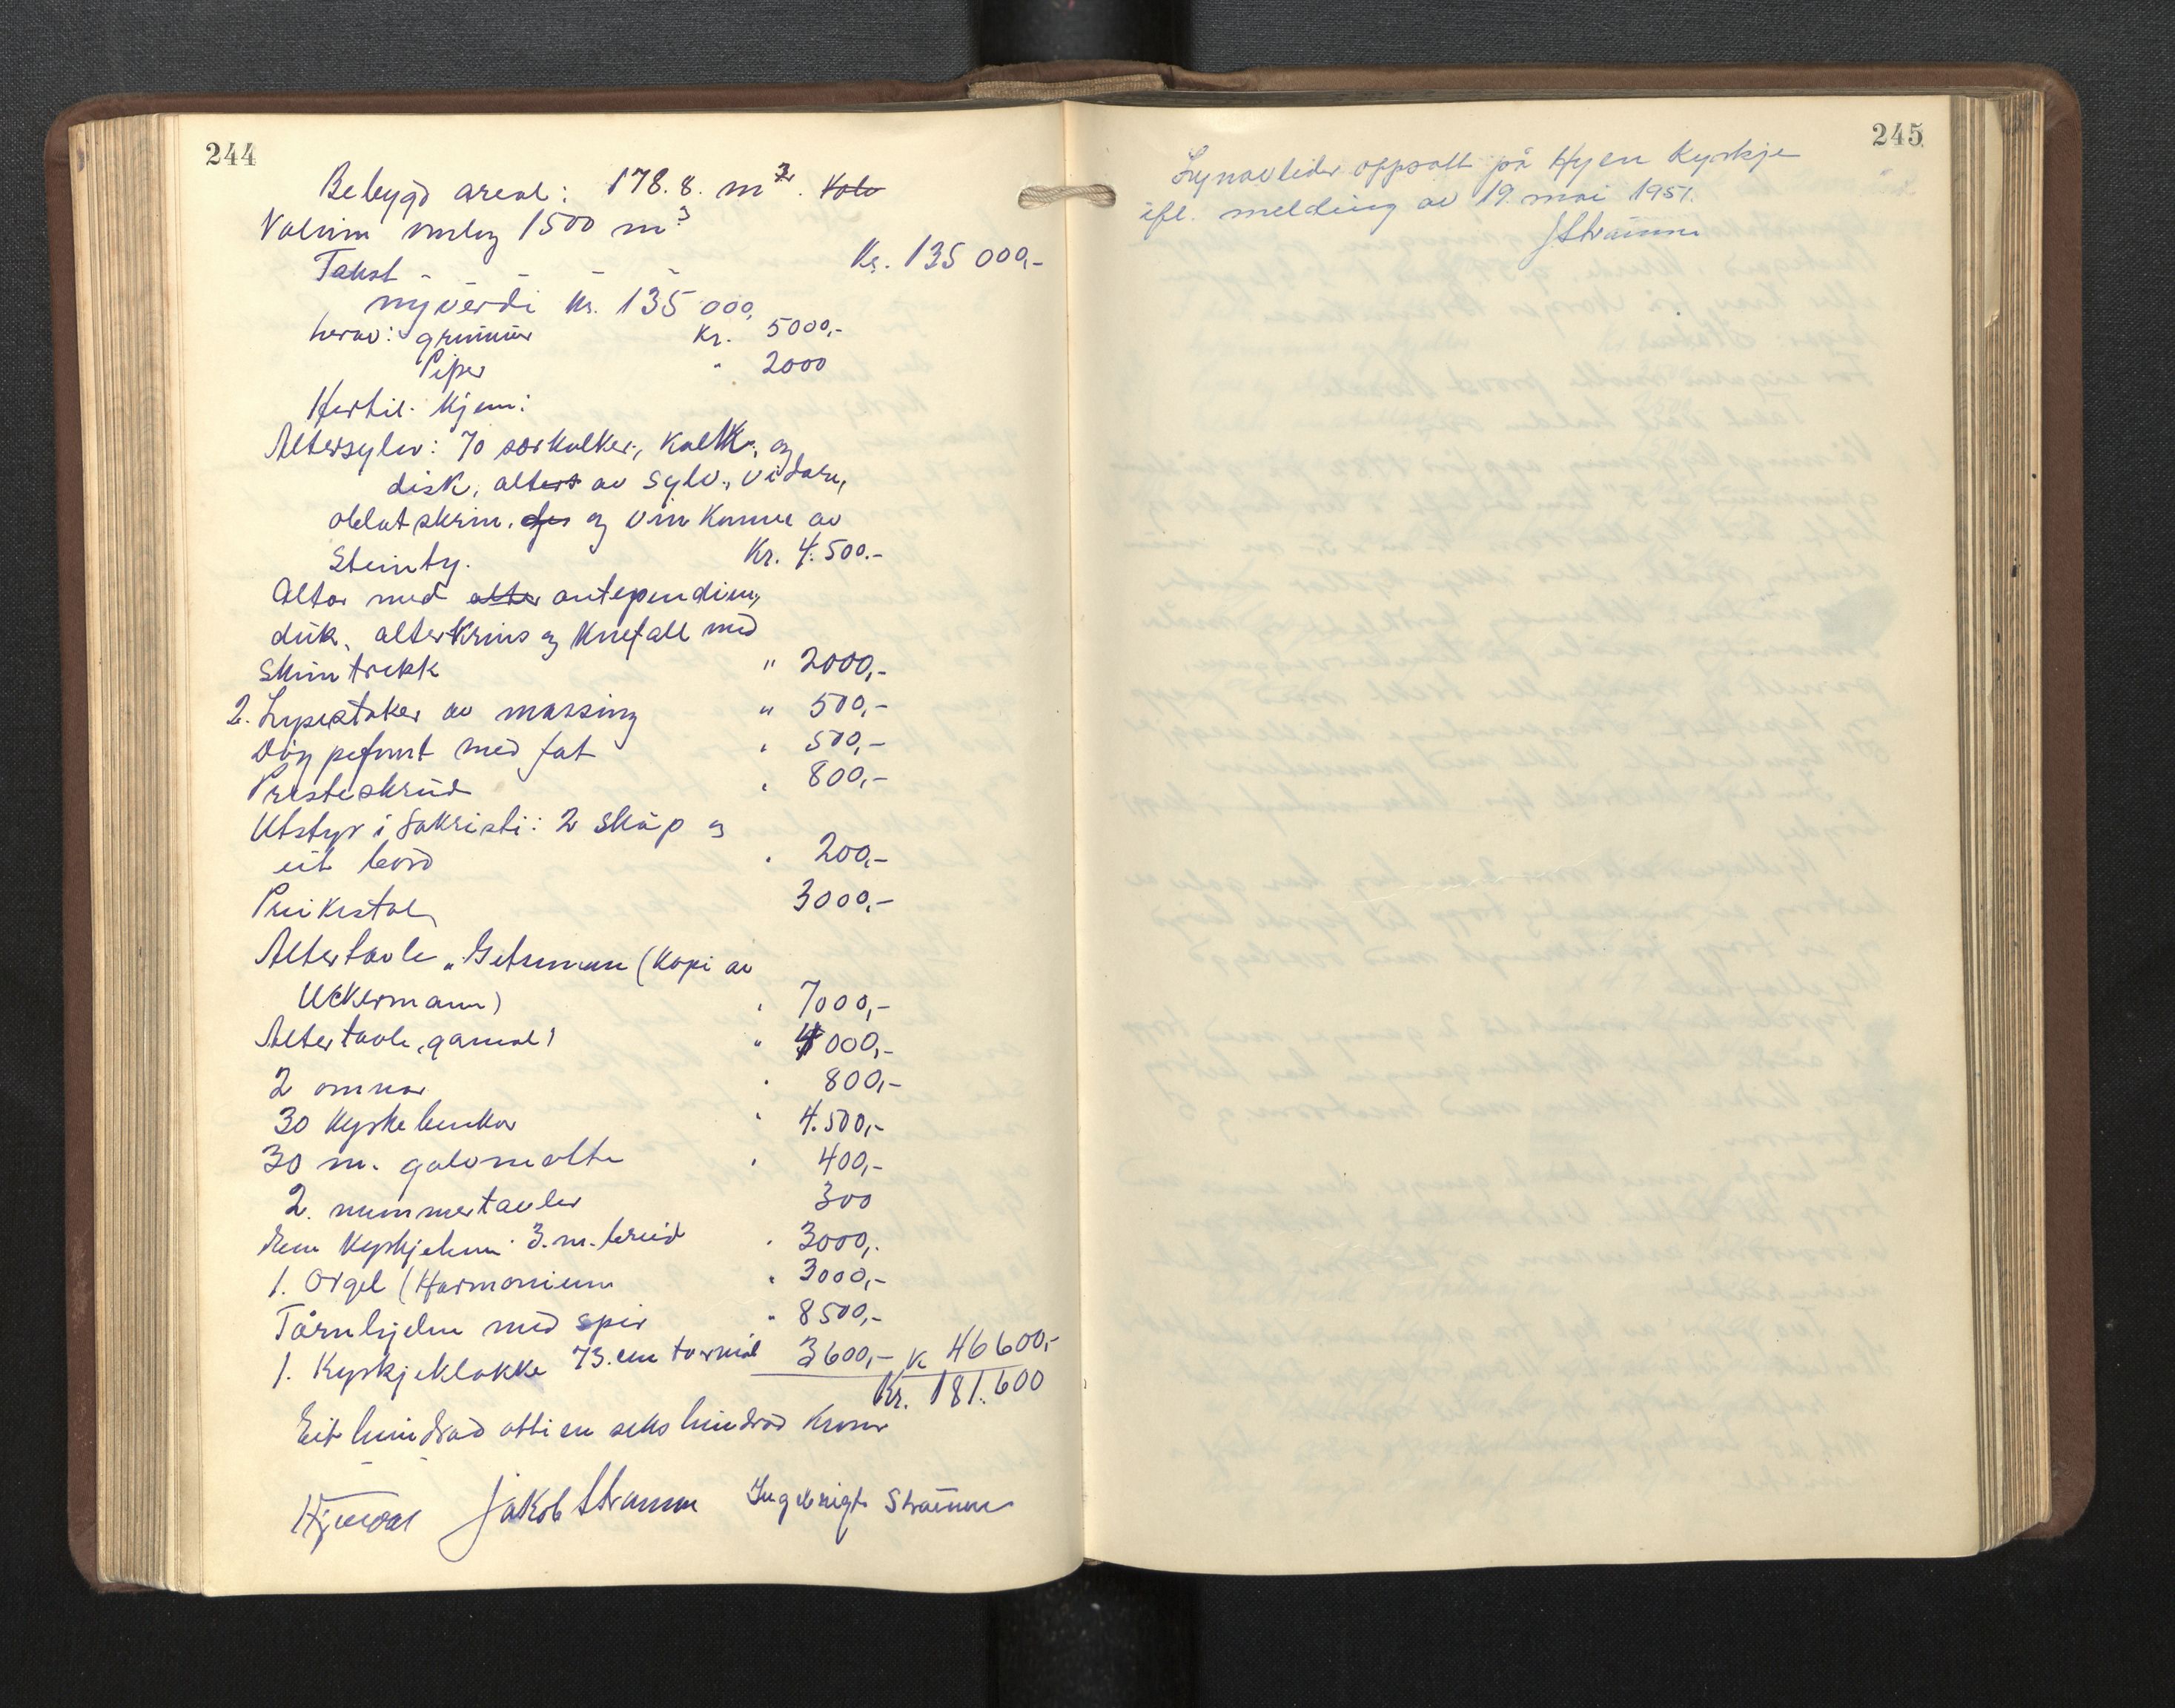 244
Bebygd areal: 178.8. m². Volu
Volum umlag 1500 m³
Takst - - - - Kr. 135 000,-
nyverdi kr. 135 000,
herav: grunnur Kr. 5000,-
Piper " 2000
Hertil kjem:
Altersylv: 70 særkalker, kalk, og
disk, altert av sylv, vidare,
oblatskrin, og vinkanne av
Steinty. Kr. 4.500.-
Altar med alter antependium,
duk, alterkrins og knefall med
skinntrekk " 2000,-
2. Lysestaker av massing " 500,-
Døypefunt med fat " 500,-
Presteskrud " 800,-
Utstyr i Sakristi: 2 skåp og
eit bord " 200,-
Preikestol 3000,-
Altertavle "Getsemane (kopi av
Uckermann) " 7000,-
Altertavle, gamal) " 4000,-
2 omnar " 800,-
30 kyrkebenkar " 4.500,-
30 m. golvmatte " 400,-
2. nummertavler 300
Ein kyrkjelem 3. m. breid " 3000,-
1. Orgel (Harmonium " 3000,-
Tårnhjelm med spir " 8500,-
1. Kyrkjeklokke 73. cm tvermål 3600,- K 46600,-
Kr. 181.600
Eit hundrad åtti en seks hundrad kroner
Jakob Straume Ingebrigt Straume
245
Lynavleder oppsatt på Hyen Kyrkje
ifl. melding av 19. mai 1951.
JStraume